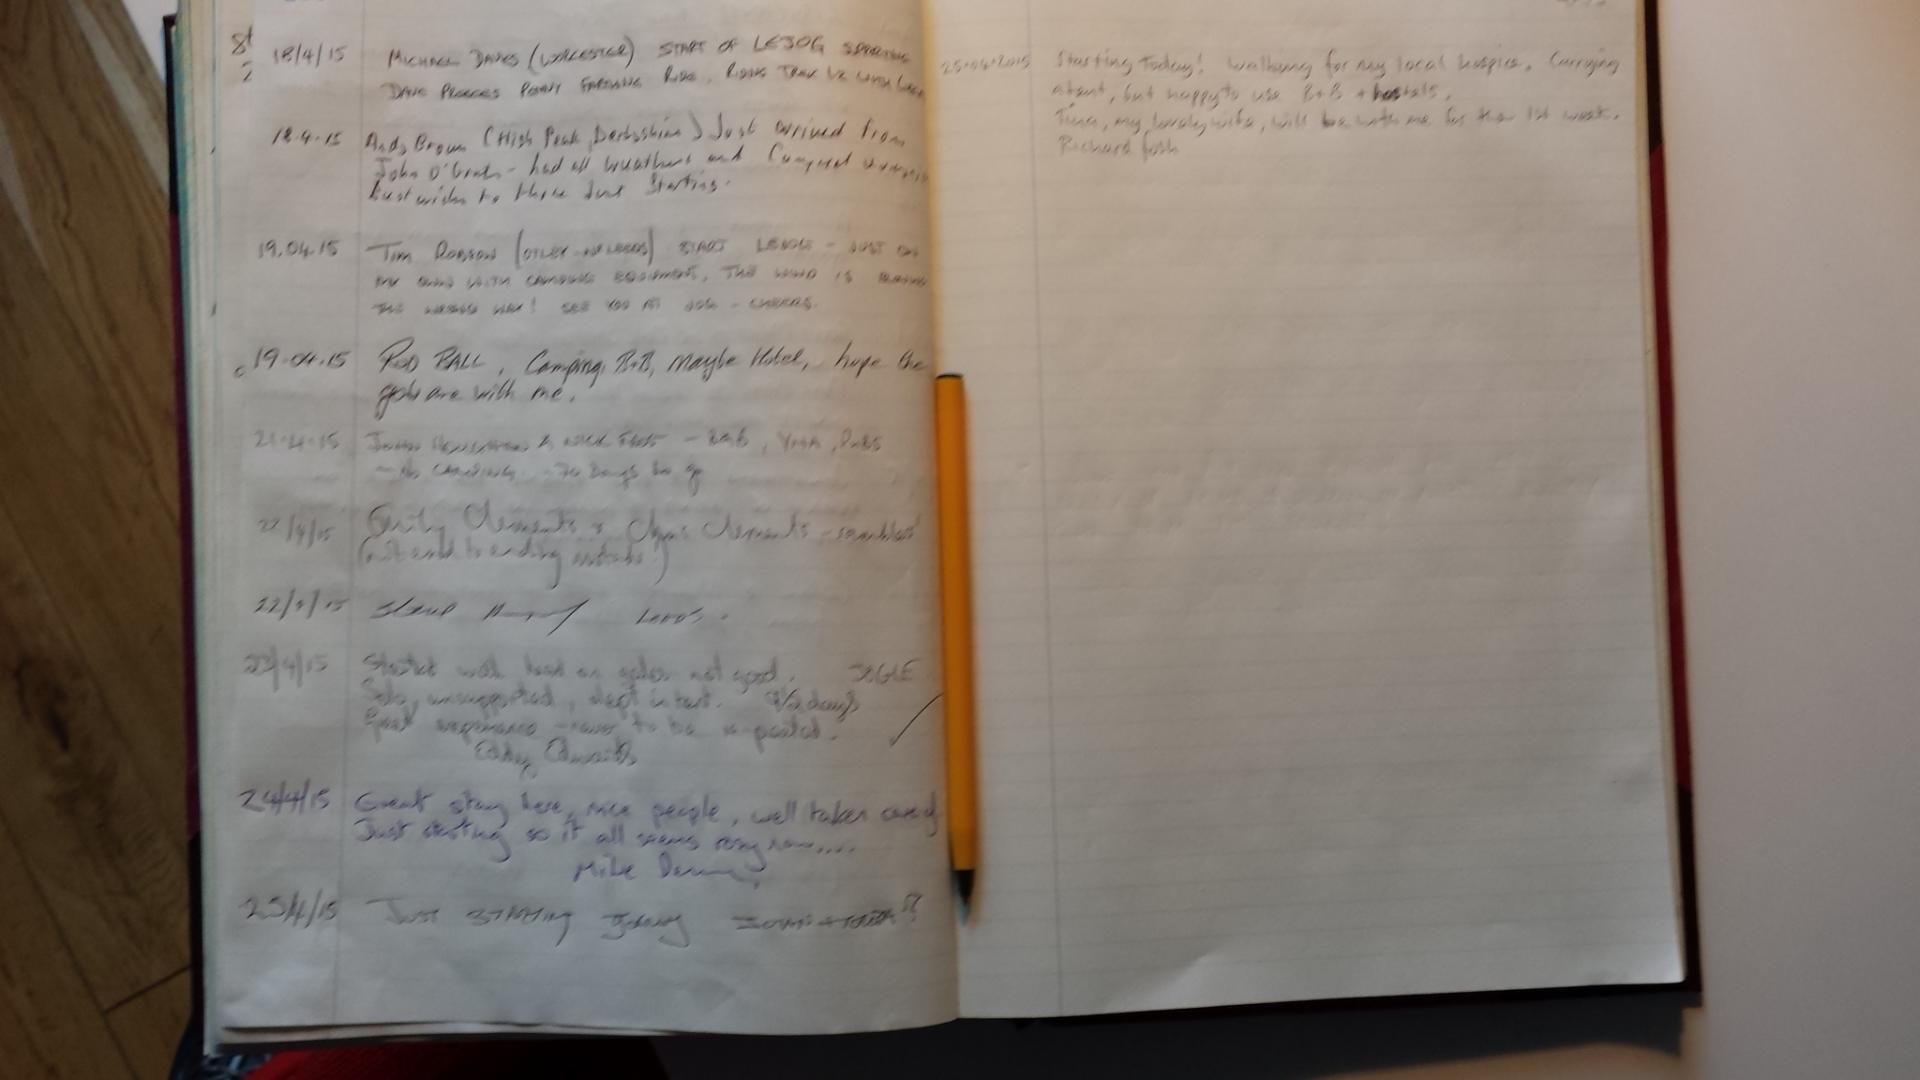 18/4/15 MICHAEL DAVIES (WORCESTER) START OF LEJOG SUPPORTING
DAVE PENNY FARTHING RIDE.
18.4.15 Andy Brown (High Peak, Derbyshire) Just arrived from
John O'Groats - had all weathers and Camped
best wishes to those Just Starting.
19.04.15 TIM (OTLEY - NR LEEDS) START LEJOG - JUST ON
MY OWN WITH CAMPING EQUIPMENT. THE WIND IS BLOWING
THE WRONG WAY! SEE YOU AT JOG - CHEERS.
19.04.15 ROD BALL, Camping, B+B, Maybe Hotel, hope the
gods are with me.
21.4.15 JOHN & NICK - B&B, YHA, PUBS
- No CAMPING - 70 Days to go
22/4/15 Emily Clements & Chris Clements -
22/4/15 LEEDS.
23/4/15 Started with not good. JOGLE
Solo, unsupported, slept in tent. days
Great experience - never to be repeated.
Eddy Edwards
24/4/15 Great stay here, nice people, well taken care of
Just starting so it all seems rosy now....
Mike
25/4/15 JUST STARTING Today
25.04.2015 Starting Today! Walking for my local hospice. Carrying
a tent, but happy to use B+B + hostels.
Tina, my lovely wife, will be with me for the 1st week.
Richard Fosh